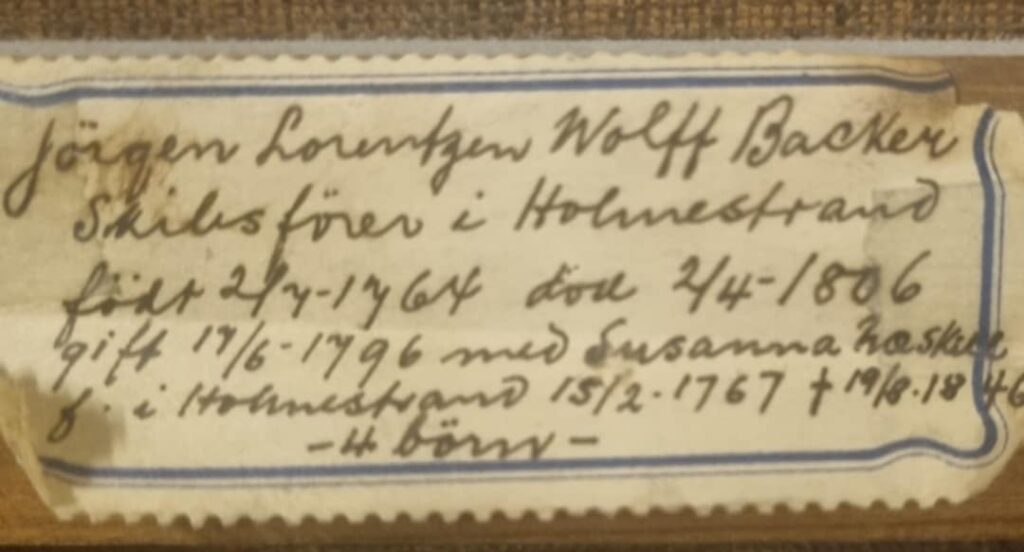 Jörgen Lorentzen Wolff Backer
Skibsförer i Holmestrand
födt 2/7-1764 död 2/4-1806
gift 17/6-1796 med Susanna
f. i Holmestrand 15/2-1767 † 19/8.1846
-4 börn-